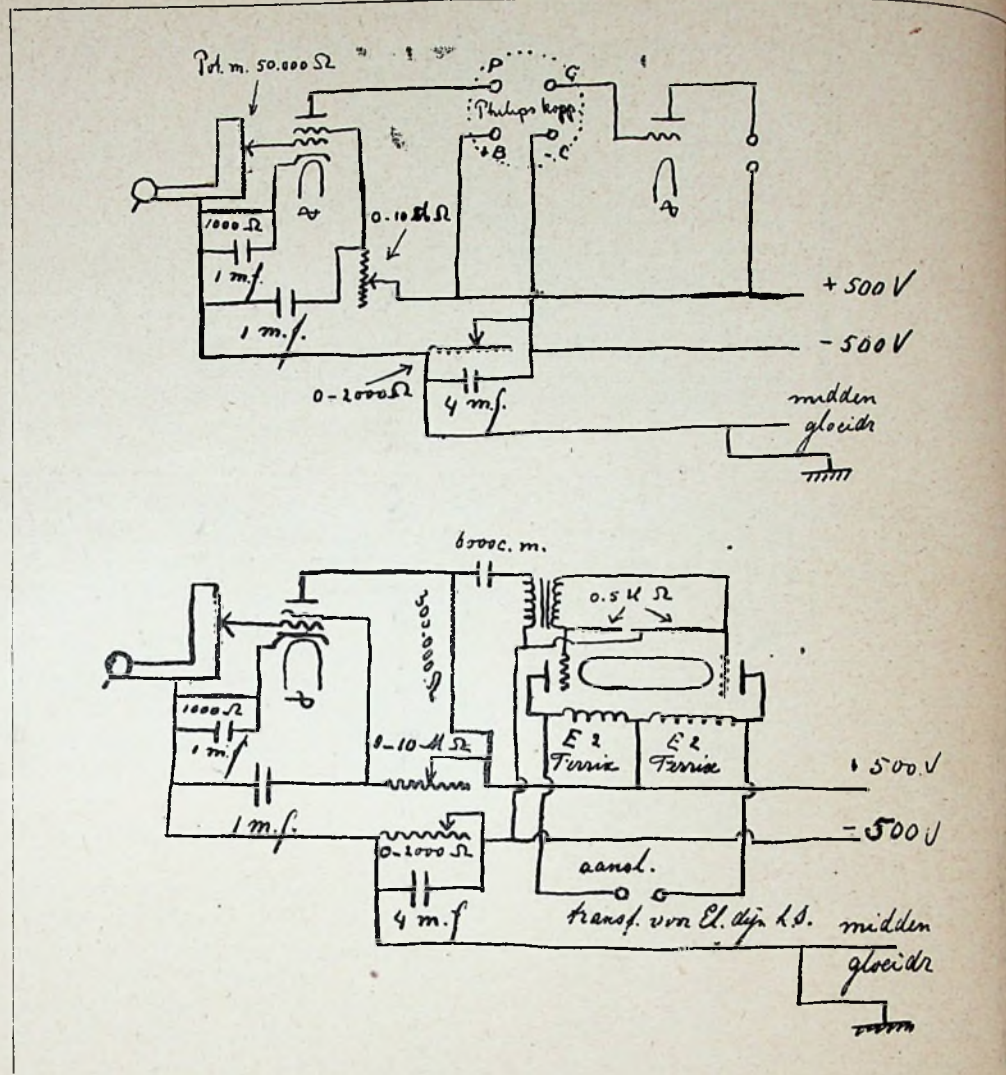 Pot. m. 50.000 Ω
P G
Philips kopp.
+B -C
1000 Ω
1 m.f.
0-10 M Ω
1 m.f.
+ 500 V
- 500 V
0-2000 Ω
4 m.f.
midden
gloeidr
6000 c.m.
0.5 M Ω
500.000 Ω
1000 Ω
1 m.f.
0-10 M Ω
E 2 E 2
Ferrix Ferrix
+ 500 V
1 m.f.
0-2000 Ω
- 500 V
aansl.
4 m.f
transf. voor El. dyn L.S.
midden
gloeidr